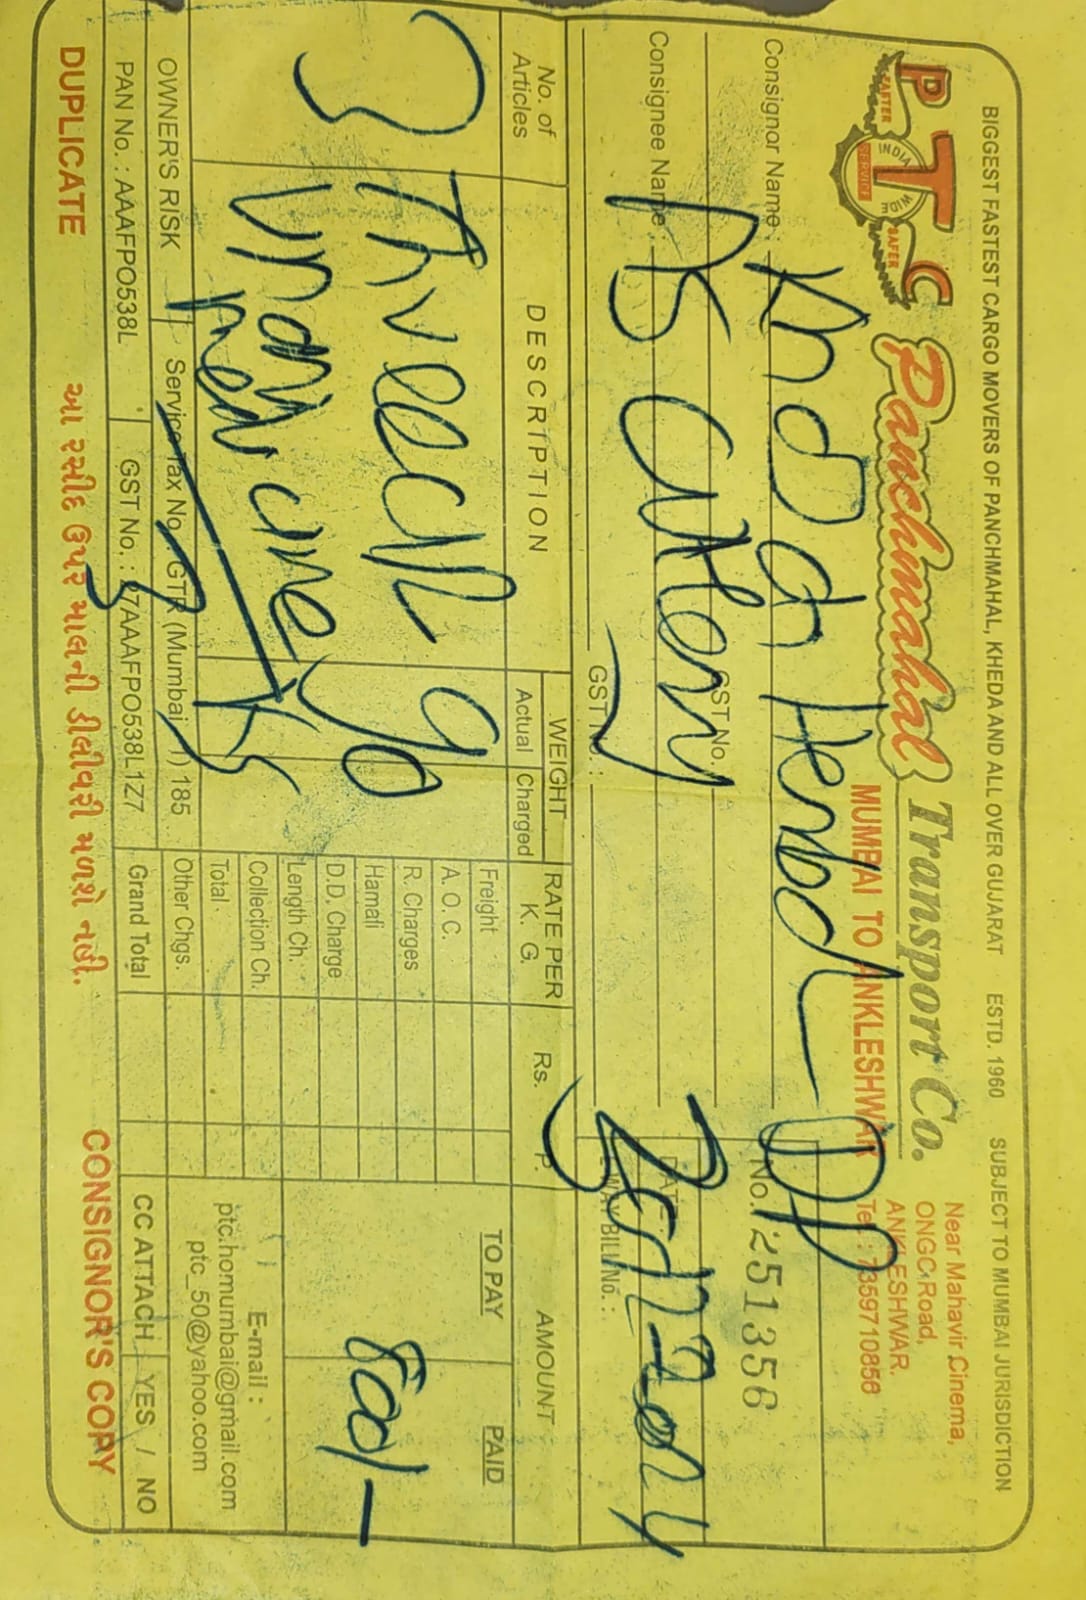 BIGGEST FASTEST CARGO MOVERS OF PANCHMAHAL, KHEDA AND ALL OVER GUJARAT ESTD. 1960 SUBJECT TO MUMBAI JURISDICTION
PTC
FASTER INDIA WIDE SAFER
SERVICE
Panchmahal Transport Co.
MUMBAI TO ANKLESHWAR
Near Mahavir Cinema,
ONGC Road,
ANKLESHWAR.
Tel.: 7359710856
DD
Consignor Name :
GST No.
No. 251356
Consignee Name :
GST No. :
DATE
E WAY BILL No. :
No. of Articles
DESCRIPTION
WEIGHT
Actual Charged
RATE PER K. G.
Rs. P
AMOUNT
TO PAY PAID
3
90
800/-
Freight
A. O. C.
R. Charges
Hamali
D.D. Charge
Length Ch.
Collection Ch.
Total
Other Chgs.
Grand Total
E-mail :
ptc.homumbai@gmail.com
ptc_50@yahoo.com
OWNER'S RISK Service Tax No. GTR (Mumbai I) 185
PAN No. : AAAFPO538L GST No. : 27AAAFPO538L1Z7
CC ATTACH YES / NO
DUPLICATE આ રસીદ ઉપર માલની ડીલીવરી મળશે નહી. CONSIGNOR'S COPY